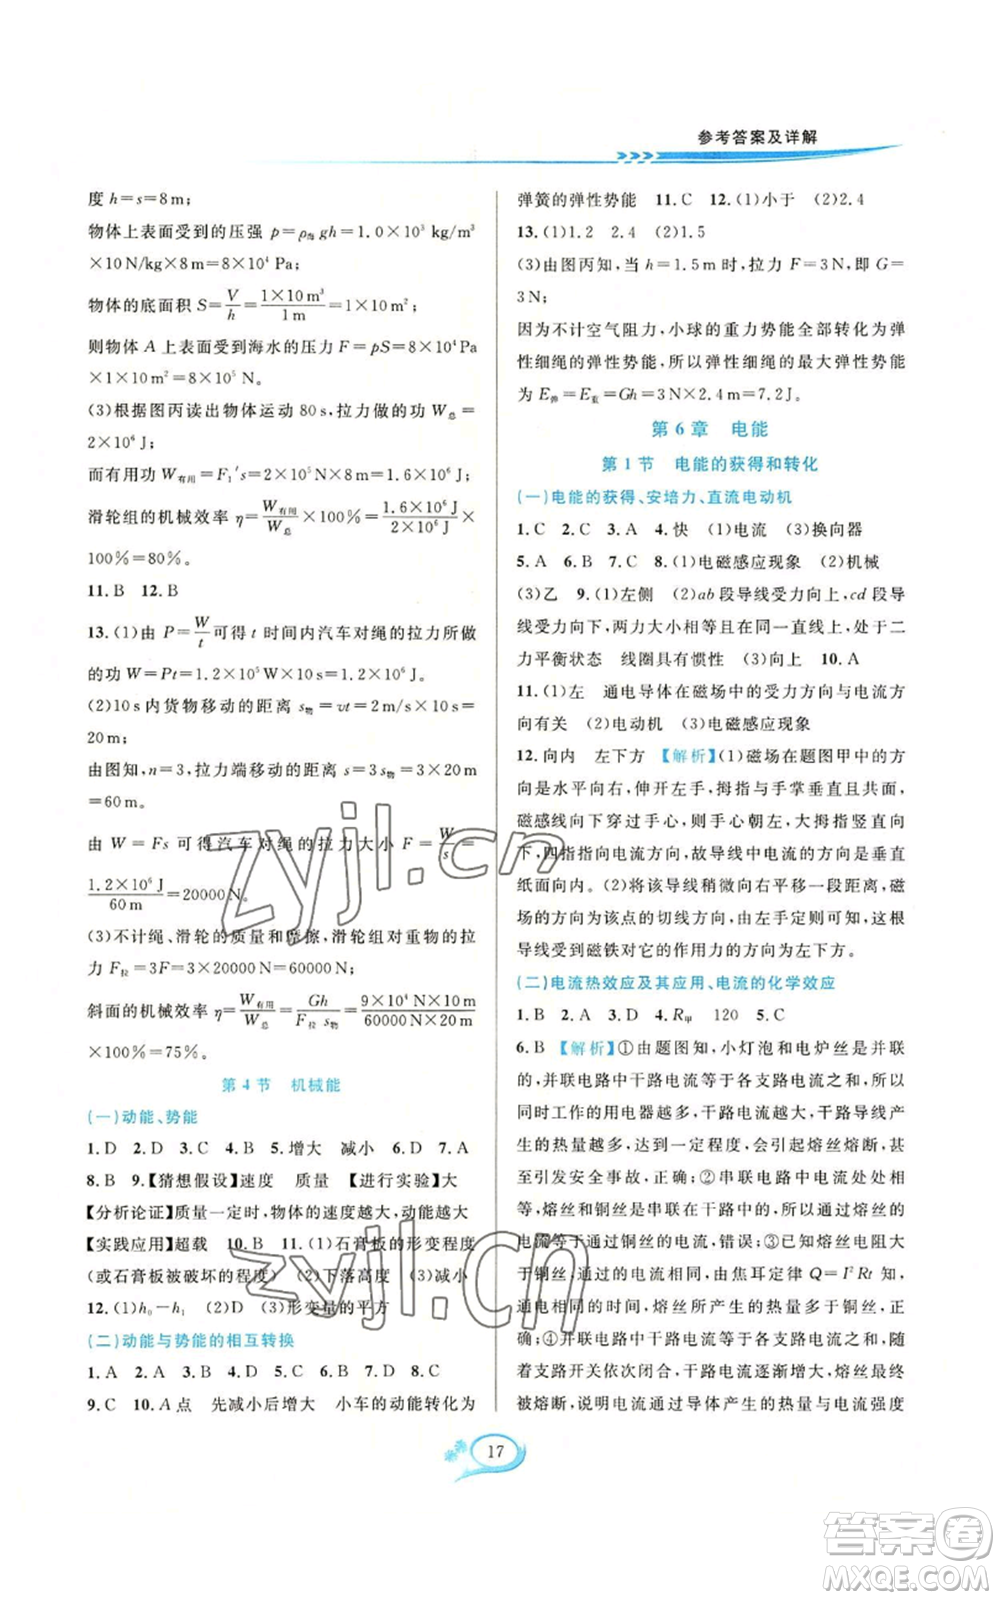 参考答案及详解
度 h＝s＝8 m；
物体上表面受到的压强 p＝ρ海gh＝1.0×10³ kg/m³
×10 N/kg×8 m＝8×10⁴ Pa；
物体的底面积 S＝V/h＝1×10 m³/1 m＝1×10 m²；
则物体 A 上表面受到海水的压力 F＝pS＝8×10⁴ Pa
×1×10 m²＝8×10⁵ N。
(3)根据图丙读出物体运动 80 s，拉力做的功 W总＝
2×10⁶ J；
而有用功 W有用＝F₁′s＝2×10⁵ N×8 m＝1.6×10⁶ J；
滑轮组的机械效率 η＝W有用/W总×100%＝1.6×10⁶ J/2×10⁶ J×
100%＝80%。
11.B 12.B
13.(1)由 P＝W/t 可得 t 时间内汽车对绳的拉力所做
的功 W＝Pt＝1.2×10⁵ W×10 s＝1.2×10⁶ J。
(2)10 s 内货物移动的距离 s物＝vt＝2 m/s×10 s＝
20 m；
由图知，n＝3，拉力端移动的距离 s＝3s物＝3×20 m
＝60 m。
由 W＝Fs 可得汽车对绳的拉力大小 F＝W/s＝
1.2×10⁶ J/60 m＝20000 N。
(3)不计绳、滑轮的质量和摩擦，滑轮组对重物的拉
力 F拉＝3F＝3×20000 N＝60000 N；
斜面的机械效率 η＝W有用/W总＝Gh/F拉 s物＝9×10⁴ N×10 m/60000 N×20 m
×100%＝75%。
第 4 节 机械能
(一)动能、势能
1.D 2.D 3.C 4.B 5.增大 减小 6.D 7.A
8.B 9.【猜想假设】速度 质量 【进行实验】大
【分析论证】质量一定时，物体的速度越大，动能越大
【实践应用】超载 10.B 11.(1)石膏板的形变程度
(或石膏板被破坏的程度) (2)下落高度 (3)减小
12.(1)h₀－h₁ (2)D (3)形变量的平方
(二)动能与势能的相互转换
1.A 2.A 3.C 4.B 5.D 6.C 7.D 8.C
9.C 10.A点 先减小后增大 小车的动能转化为
弹簧的弹性势能 11.C 12.(1)小于 (2)2.4
13.(1)1.2 2.4 (2)1.5
(3)由图丙知，当 h＝1.5 m 时，拉力 F＝3 N，即 G＝
3 N；
因为不计空气阻力，小球的重力势能全部转化为弹
性细绳的弹性势能，所以弹性细绳的最大弹性势能
为 E弹＝E重＝Gh＝3 N×2.4 m＝7.2 J。
第 6 章 电能
第 1 节 电能的获得和转化
(一)电能的获得、安培力、直流电动机
1.C 2.C 3.A 4.快 (1)电流 (3)换向器
5.A 6.B 7.C 8.(1)电磁感应现象 (2)机械
(3)乙 9.(1)左侧 (2)ab 段导线受力向上，cd 段
导线受力向下，两力大小相等且在同一直线上，处于二
力平衡状态 线圈具有惯性 (3)向上 10.A
11.(1)左 通电导体在磁场中的受力方向与电流方
向有关 (2)电动机 (3)电磁感应现象
12.向内 左下方 【解析】(1)磁场在题图甲中的方
向是水平向右，伸开左手，拇指与手掌垂直，且要让
磁感线向下穿过手心，则手心朝左，大拇指竖直向
下，四指指向电流方向，故导线中的电流方向是垂直
纸面向内。(2)将该导线稍微向右平移一段后，磁
场的方向为该点的切线方向，由左手定则可知，这根
导线受到磁铁对它的作用力的方向为左下方。
(二)电流热效应及其应用、电流的化学效应
1.B 2.A 3.D 4.R甲 120 5.C
6.B 【解析】①由题图知，小灯泡和电炉丝是并联
的，并联电路中干路电流等于各支路电流之和，所以
同时工作的用电器越多，干路电流越大，干路导线产
生的热量越多，达到一定程度，会引起熔丝熔断，甚
至引发安全事故，正确；②串联电路中电流处处相
等，熔丝和铜丝是串联在电路中的，所以通过熔丝的
电流等于通过铜丝的电流，错误；③已知熔丝电阻大
于铜丝，通过的电流相同，由焦耳定律 Q＝I²Rt 知，
通电相同时间，熔丝所产生的热量多于铜丝，正
确；④并联电路中干路电流等于各支路电流之和，随
着支路开关依次闭合，干路电流逐渐增大，熔丝最终
被熔断，说明电流通过导体产生的热量与电流强度
17
zyjl.cn
zyjl.cn
答案圈
MXQE.COM